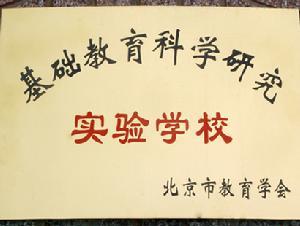 基础教育科学研究
实验学校
北京市教育学会